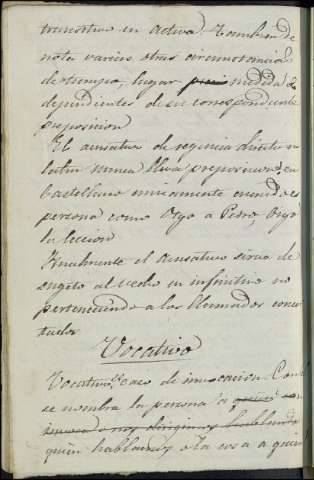 transitivo en activa. Tambien de
nota varias otras circunstancias
de tiempo, lugar precio medida &
dependientes de su correspondiente
preposicion
El acusativo de regimen directo en
latin nunca lleva preposicion, en
Castellano unicamente cuando es
persona como Oigo a Pedro, Oigo
la leccion
Finalmente el Acusativo sirve de
sugeto al verbo en infinitivo no
perteneciendo a los llamados concer
tados
Vocativo
Vocativo, caso de invocacion. Con
se nombra la persona a
invoca o nos dirigimos hablando
quien hablamos o la cosa a quien